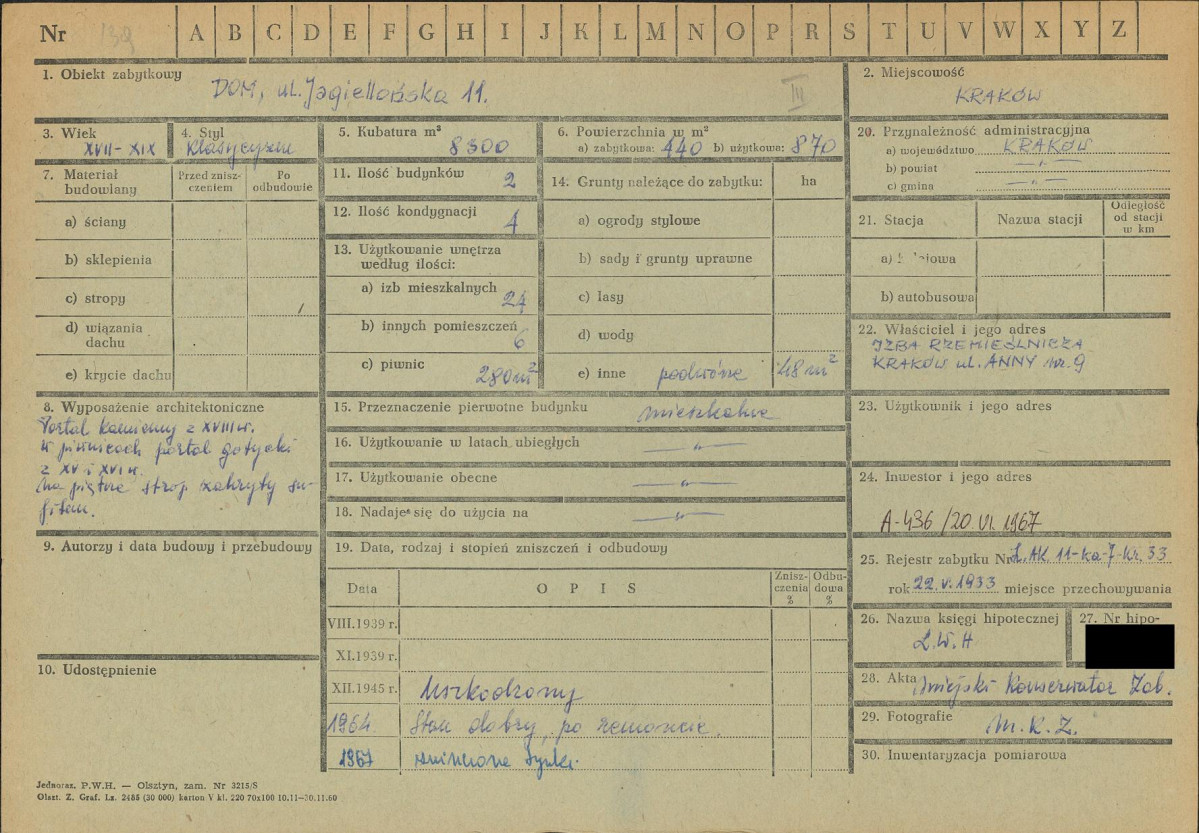 Nr 139 A B C D E F G H I J K L M N O P R S T U V W X Y Z
1. Obiekt zabytkowy
DOM, ul. Jagiellońska 11.
III
2. Miejscowość
KRAKÓW
3. Wiek
XVII - XIX
4. Styl
klasycyzm
5. Kubatura m³
8500
6. Powierzchnia w m²
a) zabytkowa: 440 b) użytkowa: 870
20. Przynależność administracyjna
a) województwo KRAKÓW
b) powiat -„-
c) gmina -„-
7. Materiał budowlany
Przed zniszczeniem
Po odbudowie
a) ściany
b) sklepienia
c) stropy
d) wiązania dachu
e) krycie dachu
11. Ilość budynków
2
12. Ilość kondygnacji
4
13. Użytkowanie wnętrza według ilości:
a) izb mieszkalnych
24
b) innych pomieszczeń
6
c) piwnic
280 m²
14. Grunty należące do zabytku: ha
a) ogrody stylowe
b) sady i grunty uprawne
c) lasy
d) wody
e) inne podwórze 48 m²
21. Stacja
Nazwa stacji
Odległość od stacji w km
a)
b) autobusowa
22. Właściciel i jego adres
IZBA RZEMIEŚLNICZA
KRAKÓW ul. ANNY nr. 9
8. Wyposażenie architektoniczne
Portal kamienny z XVIII w.
w piwnicach portal gotycki
z XV i XVI w.
na piętrze strop zakryty su-
fitem.
15. Przeznaczenie pierwotne budynku
mieszkalne
16. Użytkowanie w latach ubiegłych -„-
17. Użytkowanie obecne -„-
18. Nadaje się do użycia na -„-
23. Użytkownik i jego adres
24. Inwestor i jego adres
A-436/20.VI.1967
9. Autorzy i data budowy i przebudowy
19. Data, rodzaj i stopień zniszczeń i odbudowy
Data
O P I S
Zniszczenia %
Odbudowa %
VIII.1939 r.
XI.1939 r.
XII.1945 r. Uszkodzony
1964 Stan dobry, po remoncie.
1967 tynki.
10. Udostępnienie
25. Rejestr zabytku Nr L. AK 11-ka-7-Kr. 33
rok 22.V.1933 miejsce przechowywania
26. Nazwa księgi hipotecznej
L.W.H
27. Nr hipo-
28. Akta Miejski Konserwator Zab.
29. Fotografie
M.K.Z.
30. Inwentaryzacja pomiarowa
Jednoraz. P.W.H. — Olsztyn, zam. Nr 3215/S
Olszt. Z. Graf. Lz. 2485 (30 000) karton V kl. 220 70x100 10.11—30.11.60